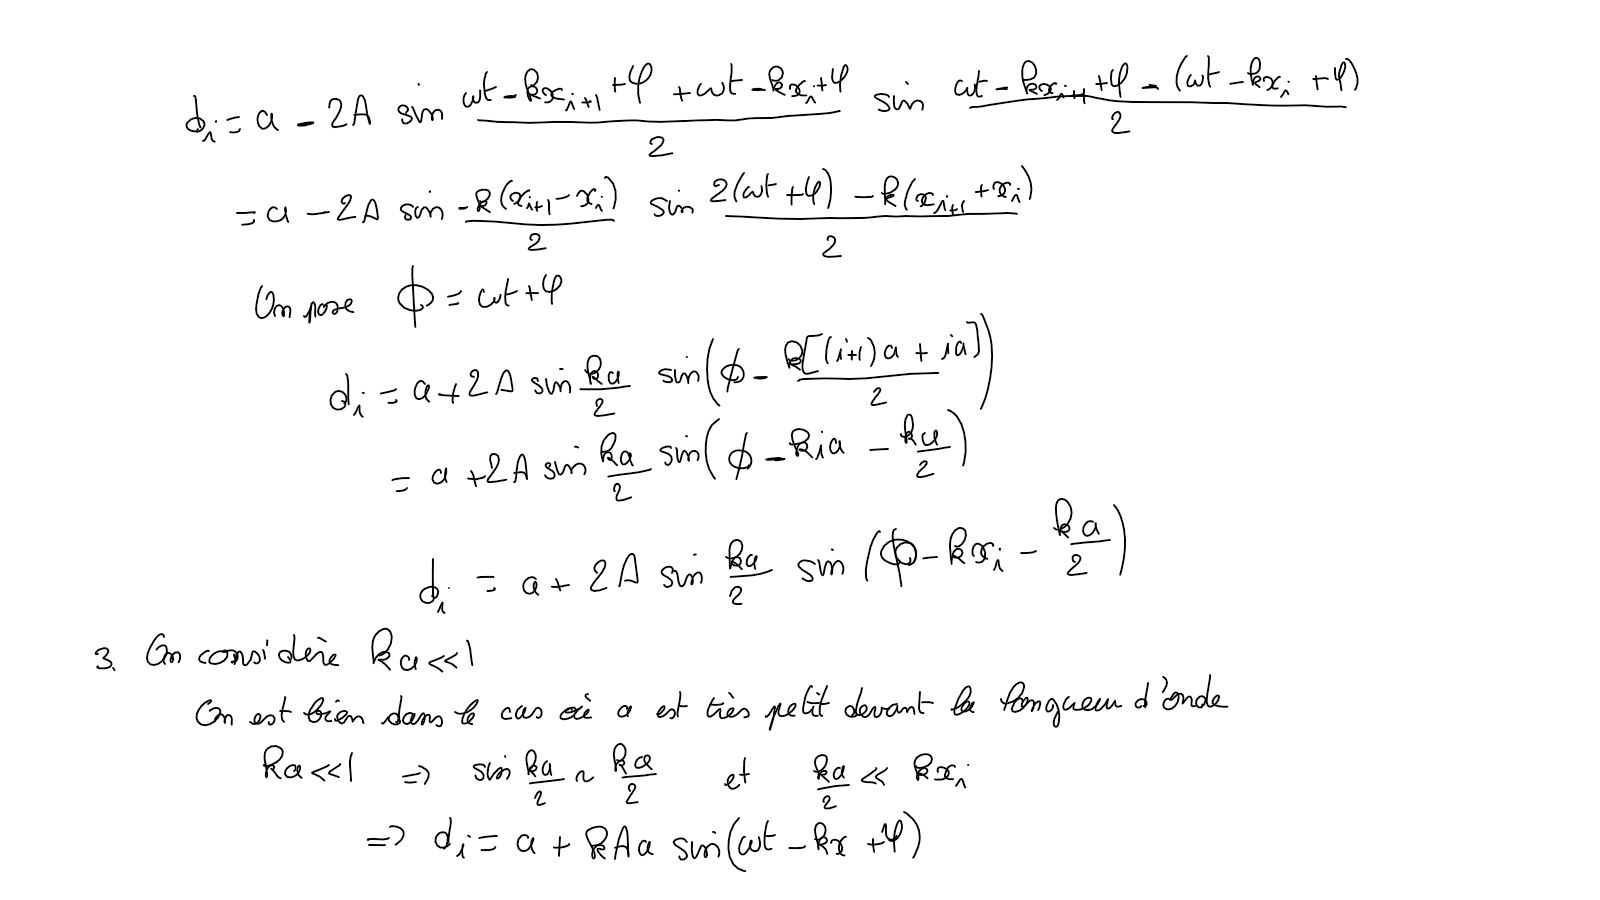 d_i = a - 2A sin (ωt - kx_{i+1} + φ + ωt - kx_i + φ)/2 sin (ωt - kx_{i+1} + φ - (ωt - kx_i + φ))/2
= a - 2A sin (-k(x_{i+1} - x_i))/2 sin (2(ωt + φ) - k(x_{i+1} + x_i))/2
On pose ϕ = ωt + φ
d_i = a + 2A sin ka/2 sin(ϕ - k[(i+1)a + ia]/2)
= a + 2A sin ka/2 sin(ϕ - kia - ka/2)
d_i = a + 2A sin ka/2 sin(ϕ - kx_i - ka/2)
3. On considère ka << 1
On est bien dans le cas où a est très petit devant la longueur d'onde
ka << 1 => sin ka/2 ~ ka/2 et ka/2 << kx_i
=> d_i = a + kAa sin(ωt - kx + φ)